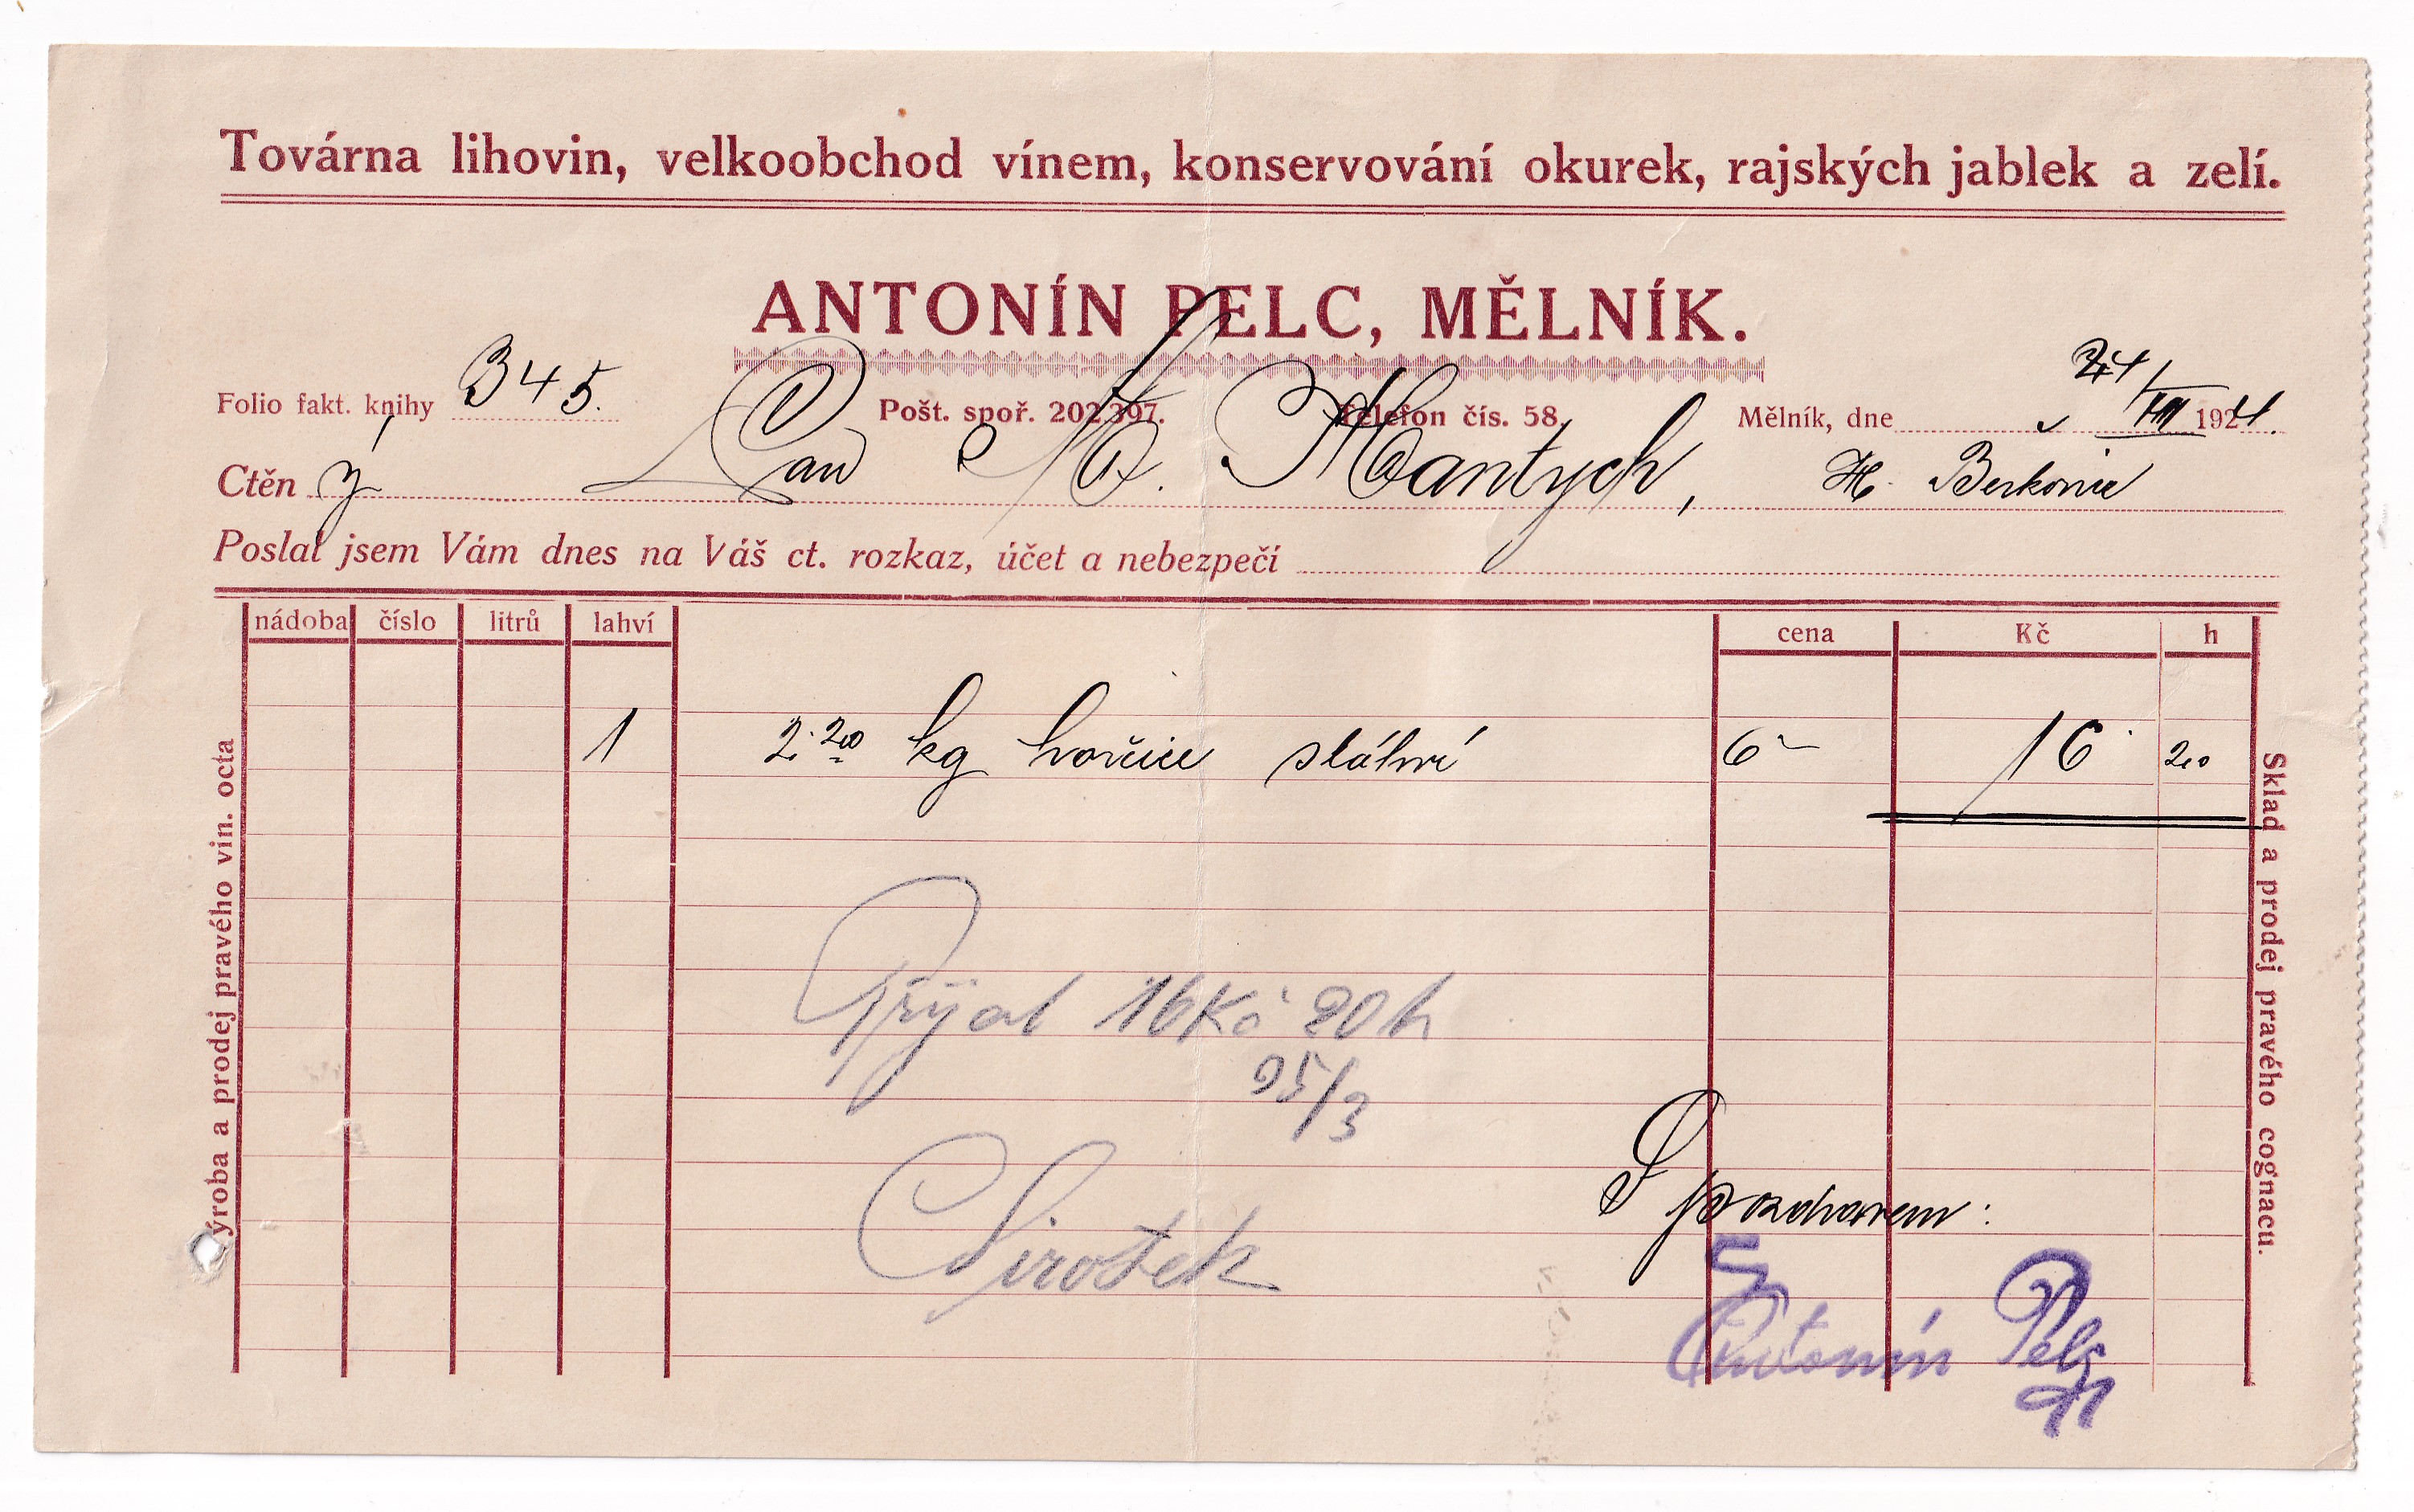 Továrna lihovin, velkoobchod vínem, konservování okurek, rajských jablek a zelí.
ANTONÍN PELC, MĚLNÍK.
Folio fakt. knihy 345. Pošt. spoř. 202.397. Telefon čís. 58. Mělník, dne 24/III 1924.
Ctěný Pan Mantych,
Poslal jsem Vám dnes na Váš ct. rozkaz, účet a nebezpečí
nádoba číslo litrů lahví cena Kč h
1 2.20 kg hořčice 6 16 20
Přijal 16 Kč 20 h
25/3
Sirotek
S pozdravem:
Antonín Pelc
ýroba a prodej pravého vin. octa
Sklad a prodej pravého cognacu.